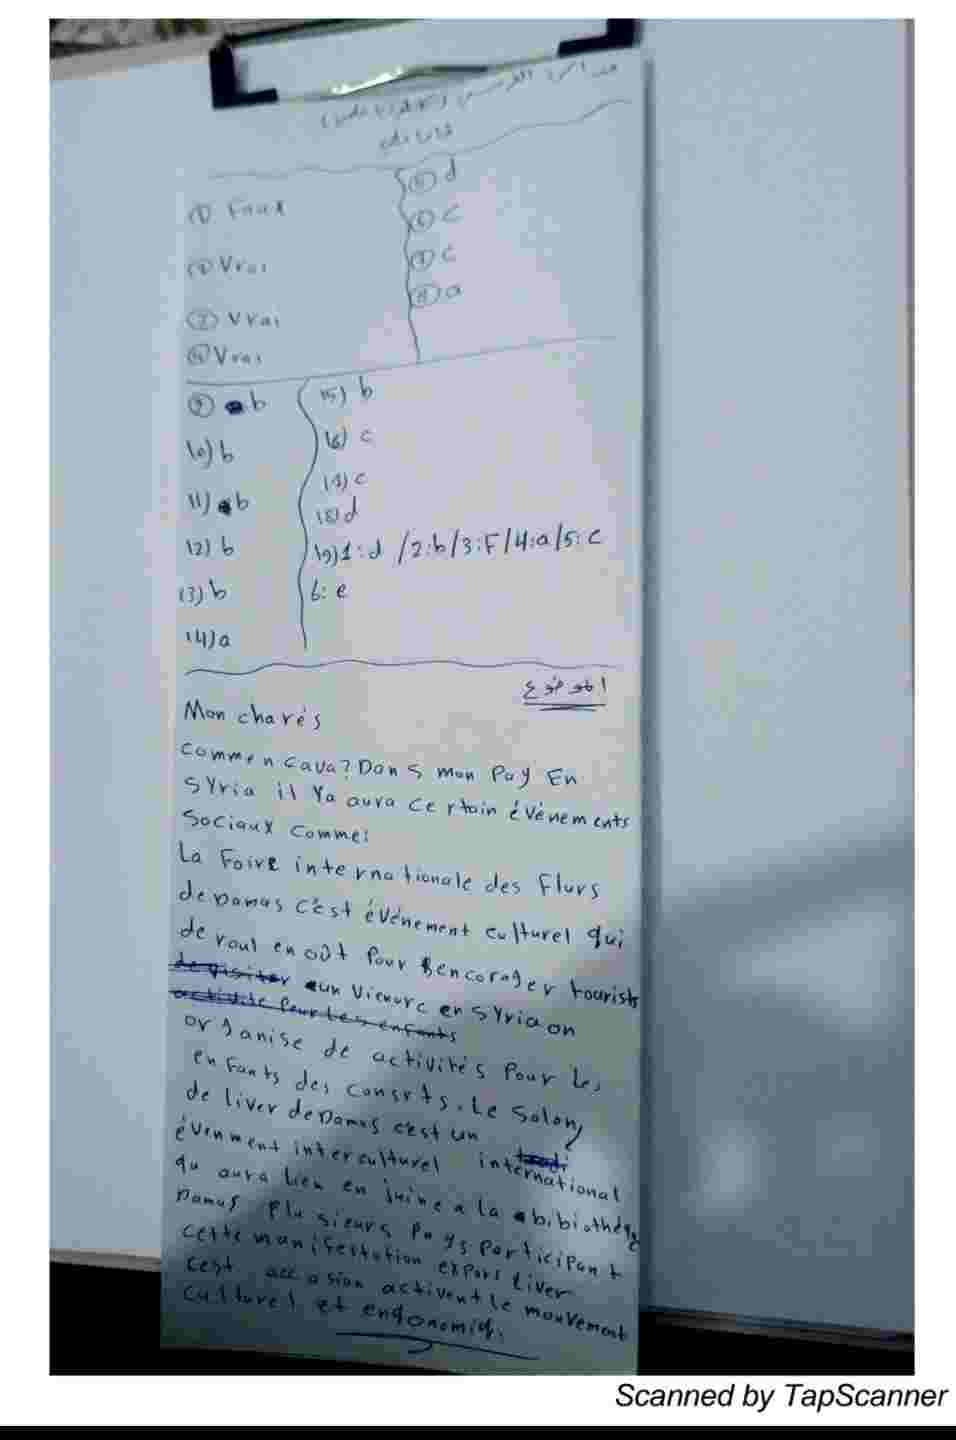 ① Faux
② Vrai
③ Vrai
④ Vrai
⑤ d
⑥ c
⑦ c
⑧ a
⑨ b
10) b
11) b
12) b
13) b
14) a
15) b
16) c
17) c
18) d
19) 1:d /2:b/3:F/4:a/5:c
6: e
الموضوع
Mon charés
commen cava? Dans mon Pay En
Syria il Ya aura certain événements
Sociaux comme:
La Foire internationale des Flurs
de Damas c'est événement culturel qui
de roul en oût Pour encorager tourists
de visiter un vieuvre en Syria on
activité Pour Les enfants
organise de activités Pour Les
enfants des consrts. Le Salon
de liver de Damas c'est un
évenment interculturel international
qu aura lieu en juine a la bibiothéqe
Damas Plusieurs Pays Participant
cette manifestation expors Liver
cest accasion activent le mouvement
culturel et endonomiq.
Scanned by TapScanner